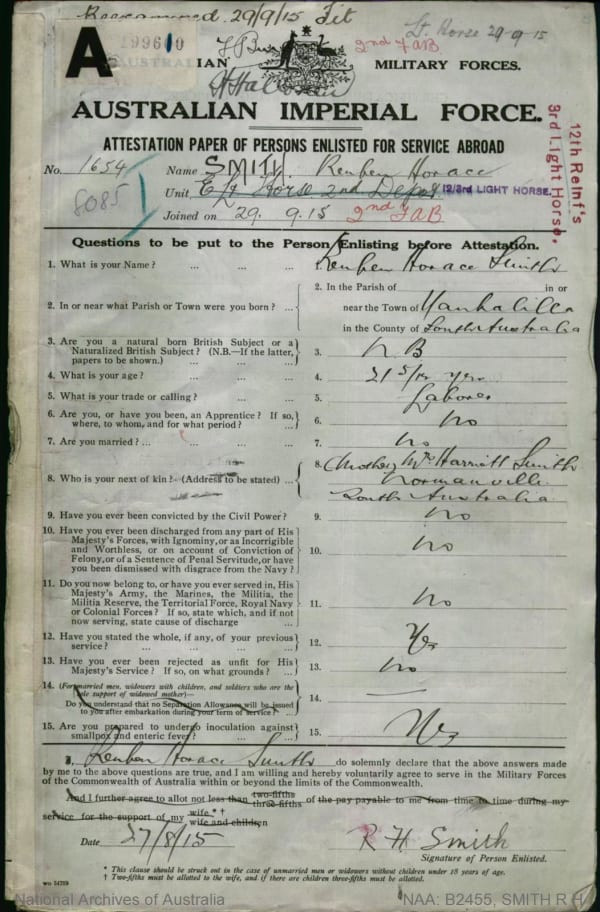 29/9/15 Fit
Lt. Horse 29-9-15
A
19960
2nd FAB
AUSTRALIAN MILITARY FORCES.
AUSTRALIAN IMPERIAL FORCE.
12th Reinf's
3rd Light Horse.
ATTESTATION PAPER OF PERSONS ENLISTED FOR SERVICE ABROAD
No. 1654 Name SMITH. Reuben Horace
8085
Unit Lt Horse 2nd Depot 12/3rd LIGHT HORSE.
Joined on 29. 9.15 2nd FAB
Questions to be put to the Person Enlisting before Attestation.
1. What is your Name? ... ... ... Reuben Horace Smith
2. In or near what Parish or Town were you born? ... 2. In the Parish of in or
near the Town of Yankalilla
in the County of South Australia
3. Are you a natural born British Subject or a
Naturalized British Subject? (N.B.—If the latter,
papers to be shown.) ... ... ... 3. N.B
4. What is your age? ... ... ... 4. 21 5/12 yrs
5. What is your trade or calling? ... ... 5. Laborer
6. Are you, or have you been, an Apprentice? If so,
where, to whom, and for what period? ... 6. No
7. Are you married? ... ... ... ... 7. No
8. Who is your next of kin? (Address to be stated) ... 8. (Mother) Mrs Harriett Smith
Normanville
South Australia
9. Have you ever been convicted by the Civil Power? 9. No
10. Have you ever been discharged from any part of His
Majesty's Forces, with Ignominy, or as Incorrigible
and Worthless, or on account of Conviction of
Felony, or of a Sentence of Penal Servitude, or have
you been dismissed with disgrace from the Navy? 10. No
11. Do you now belong to, or have you ever served in, His
Majesty's Army, the Marines, the Militia, the
Militia Reserve, the Territorial Force, Royal Navy
or Colonial Forces? If so, state which, and if not
now serving, state cause of discharge ... 11. No
12. Have you stated the whole, if any, of your previous
service? ... ... ... ... 12. Yes
13. Have you ever been rejected as unfit for His
Majesty's Service? If so, on what grounds? ... 13. No
14. (For married men, widowers with children, and soldiers who are the
sole support of widowed mother)—
Do you understand that no Separation Allowance will be issued
to you after embarkation during your term of service? ... 14. —
15. Are you prepared to undergo inoculation against
smallpox and enteric fever? ... ... 15. Yes
I, Reuben Horace Smith do solemnly declare that the above answers made
by me to the above questions are true, and I am willing and hereby voluntarily agree to serve in the Military Forces
of the Commonwealth of Australia within or beyond the limits of the Commonwealth.
And I further agree to allot not less than two-fifths three-fifths of the pay payable to me from time to time during my
service for the support of my wife * † wife and children
Date 27/8/15 R H Smith
Signature of Person Enlisted.
* This clause should be struck out in the case of unmarried men or widowers without children under 18 years of age.
† Two-fifths must be allotted to the wife, and if there are children three-fifths must be allotted.
National Archives of Australia NAA: B2455, SMITH R H